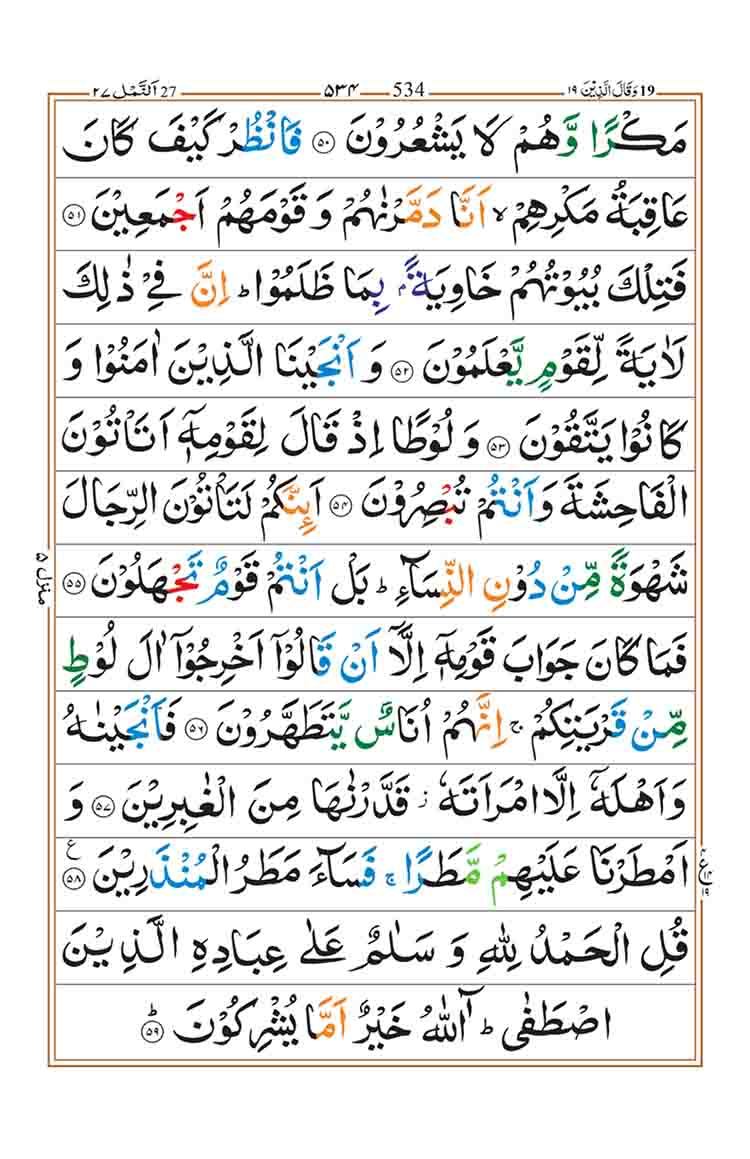 19 وَقَالَ الَّذِیْنَ ۱۹ 534 ۵۳۴ 27 اَلنَّمْل ۲۷
مَكْرًا وَّهُمْ لَا یَشْعُرُوْنَ ۝۵۰ فَانْظُرْ كَیْفَ كَانَ
عَاقِبَةُ مَكْرِهِمْ ۙ اَنَّا دَمَّرْنٰهُمْ وَ قَوْمَهُمْ اَجْمَعِیْنَ ۝۵۱
فَتِلْكَ بُیُوْتُهُمْ خَاوِیَةًۢ بِمَا ظَلَمُوْا ؕ اِنَّ فِیْ ذٰلِكَ
لَاٰیَةً لِّقَوْمٍ یَّعْلَمُوْنَ ۝۵۲ وَ اَنْجَیْنَا الَّذِیْنَ اٰمَنُوْا وَ
كَانُوْا یَتَّقُوْنَ ۝۵۳ وَ لُوْطًا اِذْ قَالَ لِقَوْمِهٖۤ اَتَاْتُوْنَ
الْفَاحِشَةَ وَ اَنْتُمْ تُبْصِرُوْنَ ۝۵۴ اَىِٕنَّكُمْ لَتَاْتُوْنَ الرِّجَالَ
شَهْوَةً مِّنْ دُوْنِ النِّسَآءِ ؕ بَلْ اَنْتُمْ قَوْمٌ تَجْهَلُوْنَ ۝۵۵
منزل ۵
فَمَا كَانَ جَوَابَ قَوْمِهٖۤ اِلَّاۤ اَنْ قَالُوْۤا اَخْرِجُوْۤا اٰلَ لُوْطٍ
مِّنْ قَرْیَتِكُمْ ۚ اِنَّهُمْ اُنَاسٌ یَّتَطَهَّرُوْنَ ۝۵۶ فَاَنْجَیْنٰهُ
وَ اَهْلَهٗۤ اِلَّا امْرَاَتَهٗ ؗ قَدَّرْنٰهَا مِنَ الْغٰبِرِیْنَ ۝۵۷ وَ
اَمْطَرْنَا عَلَیْهِمْ مَّطَرًا ۚ فَسَآءَ مَطَرُ الْمُنْذَرِیْنَ ۝۵۸ ع
۴ ع ۱۴ ۱۹
قُلِ الْحَمْدُ لِلّٰهِ وَ سَلٰمٌ عَلٰى عِبَادِهِ الَّذِیْنَ
اصْطَفٰى ؕ آٰللّٰهُ خَیْرٌ اَمَّا یُشْرِكُوْنَ ؕ۝۵۹